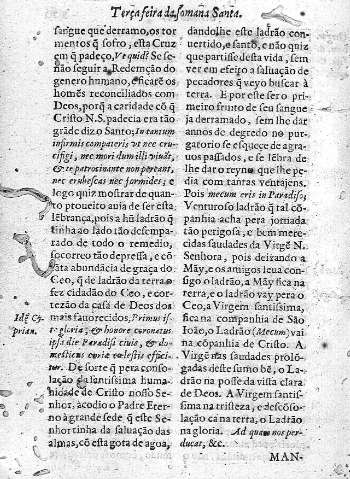 Terça feira da somana Santa.
sangue que derramo, os tor-
mentos q̃ sofro, esta Cruz
em q̃ padeço, Ut quid? Se se
não seguir a Redemção do
genero humano, & ficarẽ os
homẽs reconciliados com
Deos, porq̃ a caridade cõ q̃
Cristo N.S. padecia era tão
grãde diz o Santo; In tantum
infirmis compateris vt nec cru-
cifigi, nec mori dum illi viuãt,
& te patrocinante non pereant,
nec erubescas nec formides; e
logo quiz mostrar de quan-
to proueito auia de ser esta
lẽbrança, pois a hũ ladrão q̃
tinha ao lado tão desempa-
rado de todo o remedio,
socorreo tão depressa, e cõ
tãta abondãcia de graça do
Ceo, q̃ de ladrão da terra o
fez cidadão do Ceo, e cor-
tezão da casa de Deos dos
mais fauorecidos, Primus is-
te gloria; & honore coronatus
ipsa die Paradisi ciuis, & do-
mesticus curiæ cœlestis effici-
tur. De sorte q̃ pera conso-
lação da santissima huma-
nidade de Cristo nosso Se-
nhor, acodio o Padre Eter-
no a grande sede q̃ este Se-
nhor tinha da saluação das
almas, cõ esta gota de agoa,
Idẽ Cy-
prian.
dandolhe este ladrão con-
uertido, e santo, e não quiz
que partisse desta vida, sem
ver em efeito a saluação de
pecadores q̃ veyo buscar à
terra. E por este ser o pri-
meiro fruito de seu sangue
ja derramado, sem lhe dar
annos de degredo no pur-
gatorio se esquece de agra-
uos passados, e se lẽbra de
lhe dar o reyno que lhe pe-
dia com tantas ventajens.
Pois mecum eris in Paradiso;
Venturoso ladrão q̃ tal cõ-
panhia acha pera jornada
tão perigosa; e bem mere-
cidas saudades da Virgẽ N.
Senhora, pois deixando a
Mãy, e os amigos leua con-
sigo o ladrão, a Mãy fica na
terra, e o ladrão vay pera o
Ceo, a Virgem santissima,
fica na companhia de São
Ioão, o Ladrão (Mecum) vai
na cõpanhia de Cristo. A
Virgẽ nas saudades prolõ-
gadas deste sumo bẽ, o La-
drão na posse da vista clara
de Deos. A Virgem santis-
sima na tristeza, e desconso-
lação ca na terra, o Ladrão
na gloria. Ad quam nos per-
ducat, &c.
MAN-